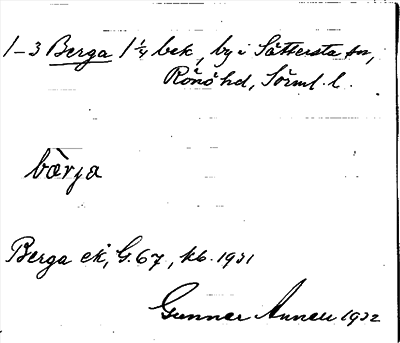 1-3 Berga 1 1/4 bek, by i Sättersta sn,
Rönö hd, Sörml. l.
bærja
Berga ek, G. 67, kb. 1931
Gunnar 1932